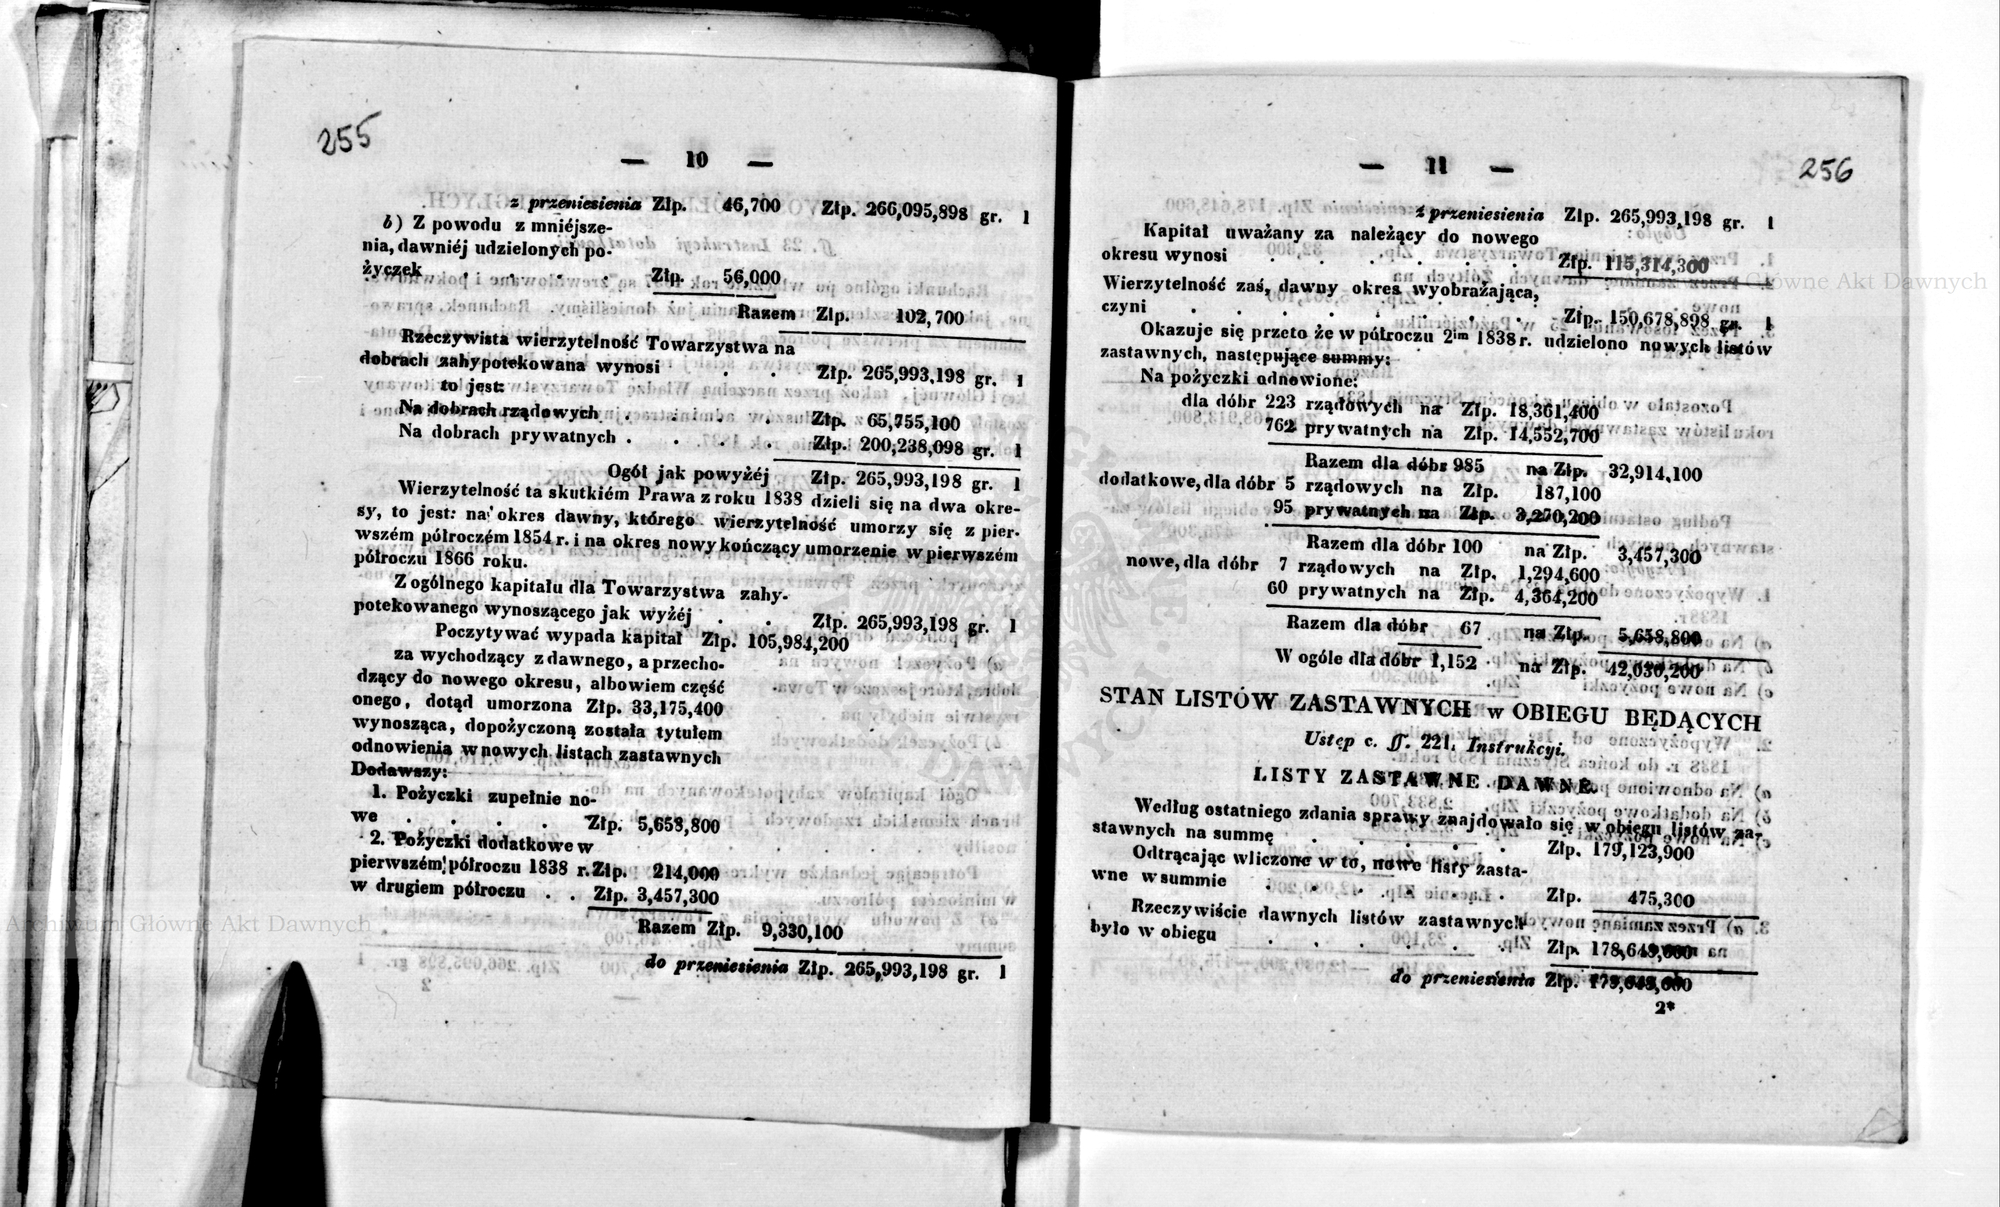 255
— 10 —
z przeniesienia Złp. 46,700 Złp. 266,095,898 gr. 1
b) Z powodu zmniéjsze-
nia, dawniéj udzielonych po-
życzek . . . . Złp. 56,000
Razem Złp. 102,700
Rzeczywista wierzytelność Towarzystwa na
dobrach zahypotekowana wynosi . . . Złp. 265,993,198 gr. 1
to jest:
Na dobrach rządowych . . . . Złp. 65,755,100
Na dobrach prywatnych . . . . Złp. 200,238,098 gr. 1
Ogół jak powyżéj Złp. 265,993,198 gr. 1
Wierzytelność ta skutkiém Prawa z roku 1838 dzieli się na dwa okre-
sy, to jest: na okres dawny, którego wierzytelność umorzy się z pier-
wszém półroczém 1854 r. i na okres nowy kończący umorzenie w pierwszém
półroczu 1866 roku.
Z ogólnego kapitału dla Towarzystwa zahy-
potekowanego wynoszącego jak wyżéj . . Złp. 265,993,198 gr. 1
Poczytywać wypada kapitał Złp. 105,984,200
za wychodzący z dawnego, a przecho-
dzący do nowego okresu, albowiem część
onego, dotąd umorzona Złp. 33,175,400
wynosząca, dopożyczoną została tytułem
odnowienia w nowych listach zastawnych
Dodawszy:
1. Pożyczki zupełnie no-
we . . . . Złp. 5,658,800
2. Pożyczki dodatkowe w
pierwszém półroczu 1838 r. Złp. 214,000
w drugiem półroczu . . Złp. 3,457,300
Razem Złp. 9,330,100
do przeniesienia Złp. 265,993,198 gr. 1
256
— 11 —
z przeniesienia Złp. 265,993,198 gr. 1
Kapitał uważany za należący do nowego
okresu wynosi . . . . . . Złp. 115,314,300
Wierzytelność zaś, dawny okres wyobrażająca,
czyni . . . . . . . . Złp. 150,678,898 gr. 1
Okazuje się przeto że w półroczu 2im 1838 r. udzielono nowych listów
zastawnych, następujące summy:
Na pożyczki odnowione:
dla dóbr 223 rządowych na Złp. 18,361,400
762 prywatnych na Złp. 14,552,700
Razem dla dóbr 985 na Złp. 32,914,100
dodatkowe, dla dóbr 5 rządowych na Złp. 187,100
95 prywatnych na Złp. 3,270,200
Razem dla dóbr 100 na Złp. 3,457,300
nowe, dla dóbr 7 rządowych na Złp. 1,294,600
60 prywatnych na Złp. 4,364,200
Razem dla dóbr 67 na Złp. 5,658,800
W ogóle dla dóbr 1,152 na Złp. 42,030,200
STAN LISTÓW ZASTAWNYCH w OBIEGU BĘDĄCYCH
Ustęp c. §. 221. Instrukcyi.
LISTY ZASTAWNE DAWNE.
Według ostatniego zdania sprawy znajdowało się w obiegu listów za-
stawnych na summę . . . . . Złp. 179,123,900
Odtrącając wliczone w to, nowe listy zasta-
wne w summie . . . . . Złp. 475,300
Rzeczywiście dawnych listów zastawnych
było w obiegu . . . . . Złp. 178,648,600
do przeniesienia Złp. 178,648,600
2*
Archiwum Główne Akt Dawnych
Główne Akt Dawnych